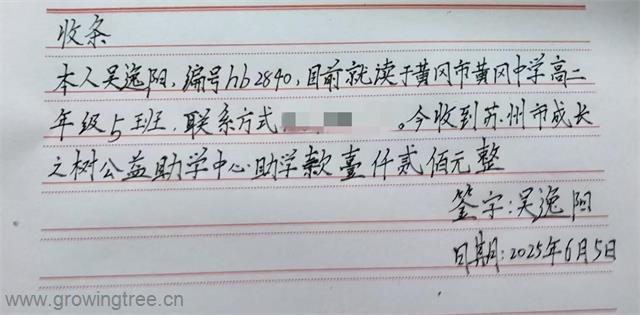 收条
本人吴逸阳,编号hb2840,目前就读于黄冈市黄冈中学高二
年级5班,联系方式 。今收到苏州市成长
之树公益助学中心助学款壹仟贰佰元整
签字:吴逸阳
日期:2025年6月5日
www.growingtree.cn